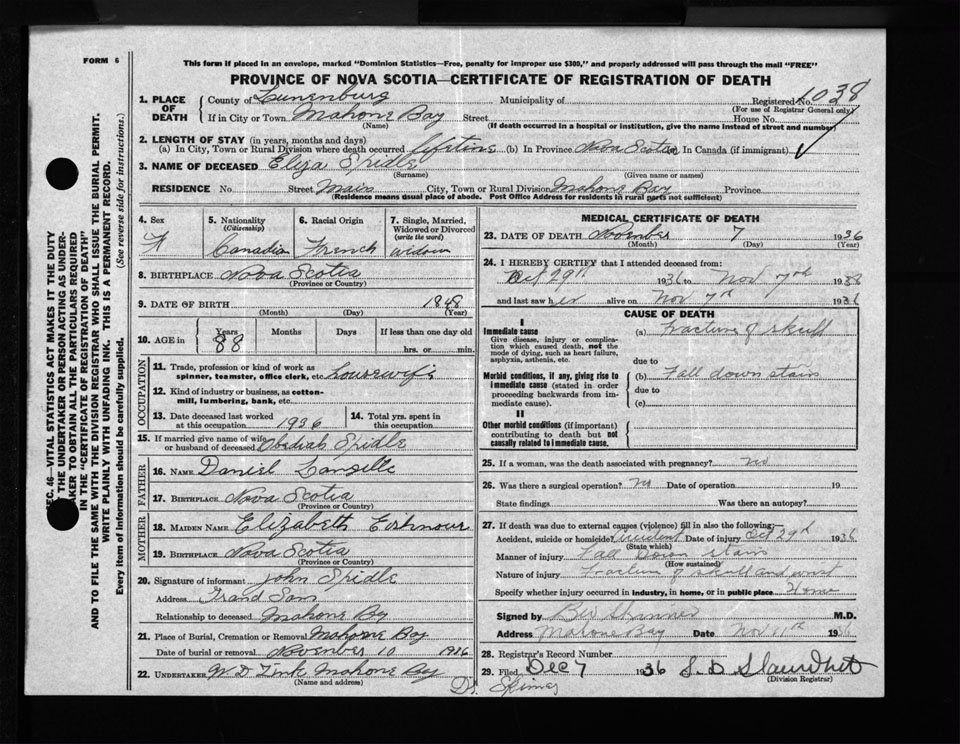 FORM 6
This form if placed in an envelope, marked "Dominion Statistics—Free, penalty for improper use $300," and properly addressed will pass through the mail "FREE"
PROVINCE OF NOVA SCOTIA—CERTIFICATE OF REGISTRATION OF DEATH
SEC. 46—VITAL STATISTICS ACT MAKES IT THE DUTY
OF THE UNDERTAKER OR PERSON ACTING AS UNDER-
TAKER TO OBTAIN ALL THE PARTICULARS REQUIRED
IN THE "CERTIFICATE OF REGISTRATION OF DEATH"
AND TO FILE THE SAME WITH THE DIVISION REGISTRAR WHO SHALL ISSUE THE BURIAL PERMIT.
WRITE PLAINLY WITH UNFADING INK. THIS IS A PERMANENT RECORD.
Every item of information should be carefully supplied. (See reverse side for instructions.)
1. PLACE OF DEATH County of Lunenburg Municipality of Registered No. 1038
(For use of Registrar General only)
If in City or Town Mahone Bay Street House No.
(Name) (If death occurred in a hospital or institution, give the name instead of street and number)
2. LENGTH OF STAY (in years, months and days)
(a) In City, Town or Rural Division where death occurred lifetime (b) In Province Nova Scotia In Canada (if immigrant)
3. NAME OF DECEASED Eliza Spidle
(Surname) (Given name or names)
RESIDENCE No. Street Main City, Town or Rural Division Mahone Bay Province
(Residence means usual place of abode. Post Office Address for residents in rural parts not sufficient)
4. Sex 5. Nationality (Citizenship) 6. Racial Origin 7. Single, Married, Widowed or Divorced (write the word)
F Canadian French widow
8. BIRTHPLACE Nova Scotia
(Province or Country)
9. DATE OF BIRTH 1848
(Month) (Day) (Year)
10. AGE in Years Months Days If less than one day old
88 hrs. or min.
OCCUPATION
11. Trade, profession or kind of work as
spinner, teamster, office clerk, etc. housewife
12. Kind of industry or business, as cotton-
mill, lumbering, bank, etc.
13. Date deceased last worked at this occupation 1936 14. Total yrs. spent in this occupation
15. If married give name of wife
or husband of deceased Obediah Spidle
FATHER
16. NAME Daniel Langille
17. BIRTHPLACE Nova Scotia
(Province or Country)
MOTHER
18. MAIDEN NAME Elizabeth
19. BIRTHPLACE Nova Scotia
(Province or Country)
20. Signature of informant John Spidle
Address Grand Son
Relationship to deceased Mahone Bay
21. Place of Burial, Cremation or Removal Mahone Bay
Date of burial or removal November 10 1936
22. UNDERTAKER W D Zink Mahone Bay
(Name and address)
MEDICAL CERTIFICATE OF DEATH
23. DATE OF DEATH November 7 1936
(Month) (Day) (Year)
24. I HEREBY CERTIFY that I attended deceased from:
Oct 29th 1936 to Nov 7th 1936
and last saw her alive on Nov 7th 1936
CAUSE OF DEATH
I
Immediate cause (a) Fracture of skull
Give disease, injury or complica-
tion which caused death, not the
mode of dying, such as heart failure,
asphyxia, asthenia, etc. due to
Morbid conditions, if any, giving rise to (b) Fall down stairs
immediate cause (stated in order due to
proceeding backwards from im-
mediate cause). (c)
II
Other morbid conditions (if important)
contributing to death but not
causally related to immediate cause.
25. If a woman, was the death associated with pregnancy? no
26. Was there a surgical operation? no Date of operation 19
State findings Was there an autopsy?
27. If death was due to external causes (violence) fill in also the following—
Accident, suicide or homicide? Accident Date of injury Oct 29th 1936
(State which)
Manner of injury Fall Down stairs
(How sustained)
Nature of injury Fracture of skull and wrist
Specify whether injury occurred in industry, in home, or in public place Home
Signed by Skinner M.D.
Address Mahone Bay Date Nov 11th 1936
28. Registrar's Record Number
29. Filed Dec 7 1936 S. D.
(Division Registrar)